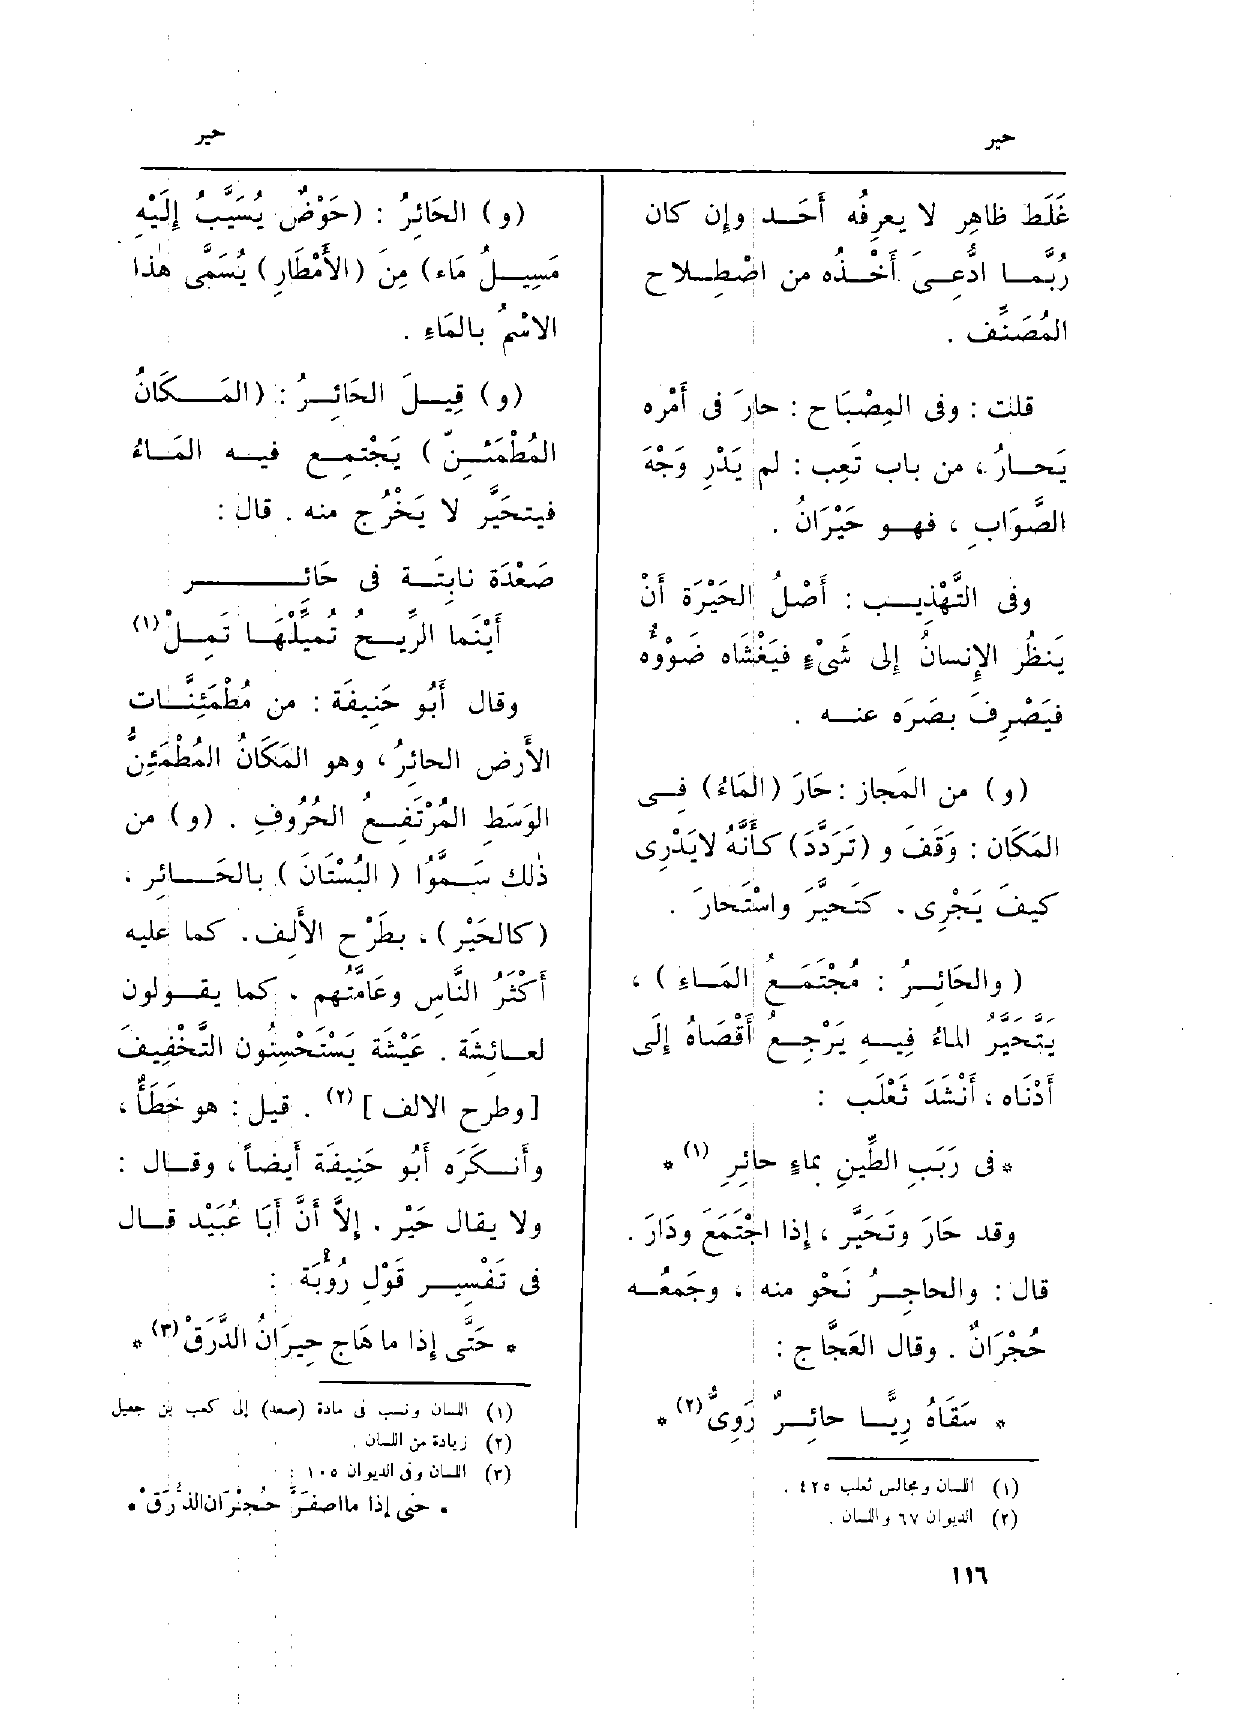 حير
حير
غَلَط ظاهِر لا يعرِفُه أَحَد وإن كان
رُبَّما ادُّعِىَ أَخْذُه من اصْطِلاح
المُصَنِّف .
قلت : وفى المِصْبَاح : حارَ فى أَمْرِه
يَحارُ ، من باب تَعِب : لم يَدْرِ وَجْهَ
الصَّوَابِ ، فهو حَيْرَانُ .
وفى التَّهْذِيب : أَصْلُ الحَيْرَة أَنْ
يَنظُر الإنسانُ إلى شَىْءٍ فيَغْشَاه ضَوْؤُه
فيَصْرِفَ بصَرَه عنه .
(و) من المَجاز : حَارَ (المَاءُ) فِى
المَكَان : وَقَفَ و (تَرَدَّدَ) كأَنَّهُ لايَدْرِى
كيفَ يَجْرِى . كتَحيَّرَ واسْتَحارَ .
(والحَائِرُ : مُجْتَمَعُ المَاءِ) ،
يَتَحَيَّرُ الماءُ فِيهِ يَرْجِعُ أَقْصَاهُ إِلَى
أَدْنَاه ، أَنْشَدَ ثَعْلَب :
* فى رَبَبِ الطِّينِ بماءٍ حائِرِ (١) *
وقد حَارَ وتَحَيَّر ، إذا اجْتَمَع ودَارَ .
قال : والحاجِرُ نَحْوٌ منه ، وجَمعُه
حُجْرَانٌ . وقال العَجَّاج :
* سَقَاهُ رِيًّا حائِرٌ رَوِىُّ (٢) *
(١) اللسان ومجالس ثعلب ٤٢٥ .
(٢) الديوان ٦٧ واللسان .
(و) الحَائِرُ : (حَوْضٌ يُسَيَّبُ إِلَيْهِ
مَسِيلُ مَاءٍ) مِنَ (الأَمْطَارِ) يُسَمَّى هٰذا
الاسْمُ بالمَاءِ .
(و) قِيلَ الحَائِرُ : (المَكَانُ
المُطْمَئِنّ) يَجْتَمِع فيه المَاءُ
فيتحَيَّر لا يَخْرُج منه . قال :
صَعْدَة نابِتَة فى حَائِر
أَيْنَما الرِّيحُ تُميِّلْهَا تَمِلْ (١)
وقال أَبُو حَنِيفَة : من مُطْمَئِنَّات
الأَرضِ الحائِرُ ، وهو المَكَانُ المُطْمَئِنُّ
الوَسَطِ المُرْتَفِعُ الحُرُوفِ . (و) من
ذٰلك سَمَّوُا (البُسْتَانَ) بالحَائِر ،
(كالحَيْر) ، بطَرْح الأَلِف . كما عليه
أَكْثَرُ النَّاس وعَامَّتُهم . كما يقولون
لعائشَة . عَيْشَة يَسْتَحْسِنُون التَّخْفِيفَ
[وطرح الالف] (٢) . قيل : هو خَطَأٌ ،
وأَنكَرَه أَبُو حَنِيفَة أَيضاً ، وقال :
ولا يقال حَيْر . إلاَّ أَنَّ أَبَا عُبَيْد قال
فى تَفْسِير قَوْل رُؤْبَة :
* حَتَّى إذا ما هَاج حِيرَانُ الدَّرَقْ (٣) *
(١) اللسان ونسب فى مادة (صعد) إلى كعب بن جعيل
(٢) زيادة من اللسان .
(٣) اللسان وفى الديوان ١٠٥ :
* حَتى إذا ما اصفرَّ حُجْرَان الذُّرَقْ *
١١٦